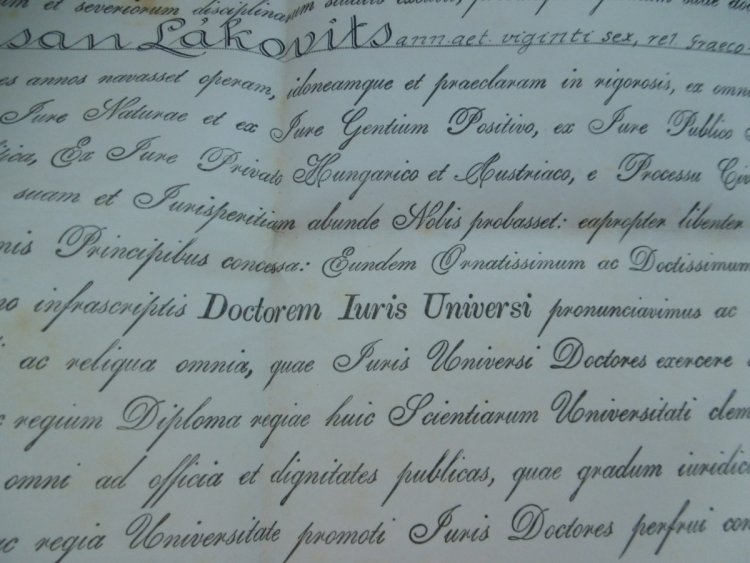 et severiorum disciplinarum studiis
san Lákovits ann. aet. viginti sex, rel. Graeco
es annos navasset operam, idoneamque et praeclaram in rigorosis, ex omni
Jure Naturae et ex Jure Gentium Positivo, ex Jure Publico
ica, Ex Jure Privato Hungarico et Austriaco, e Processu Civ
suam et Jurisperitiam abunde Nobis probasset: eapropter libenter
nis Principibus concessa: Eundem Ornatissimum ac Doctissimum
no infrascriptis Doctorem Iuris Universi pronunciavimus ac
i ac reliqua omnia, quae Juris Universi Doctores exercere
c regium Diploma regiae huic Scientiarum Universitati clem
omni ad officia et dignitates publicas, quae gradum iuridic
ac regia Universitate promoti Juris Doctores perfrui con